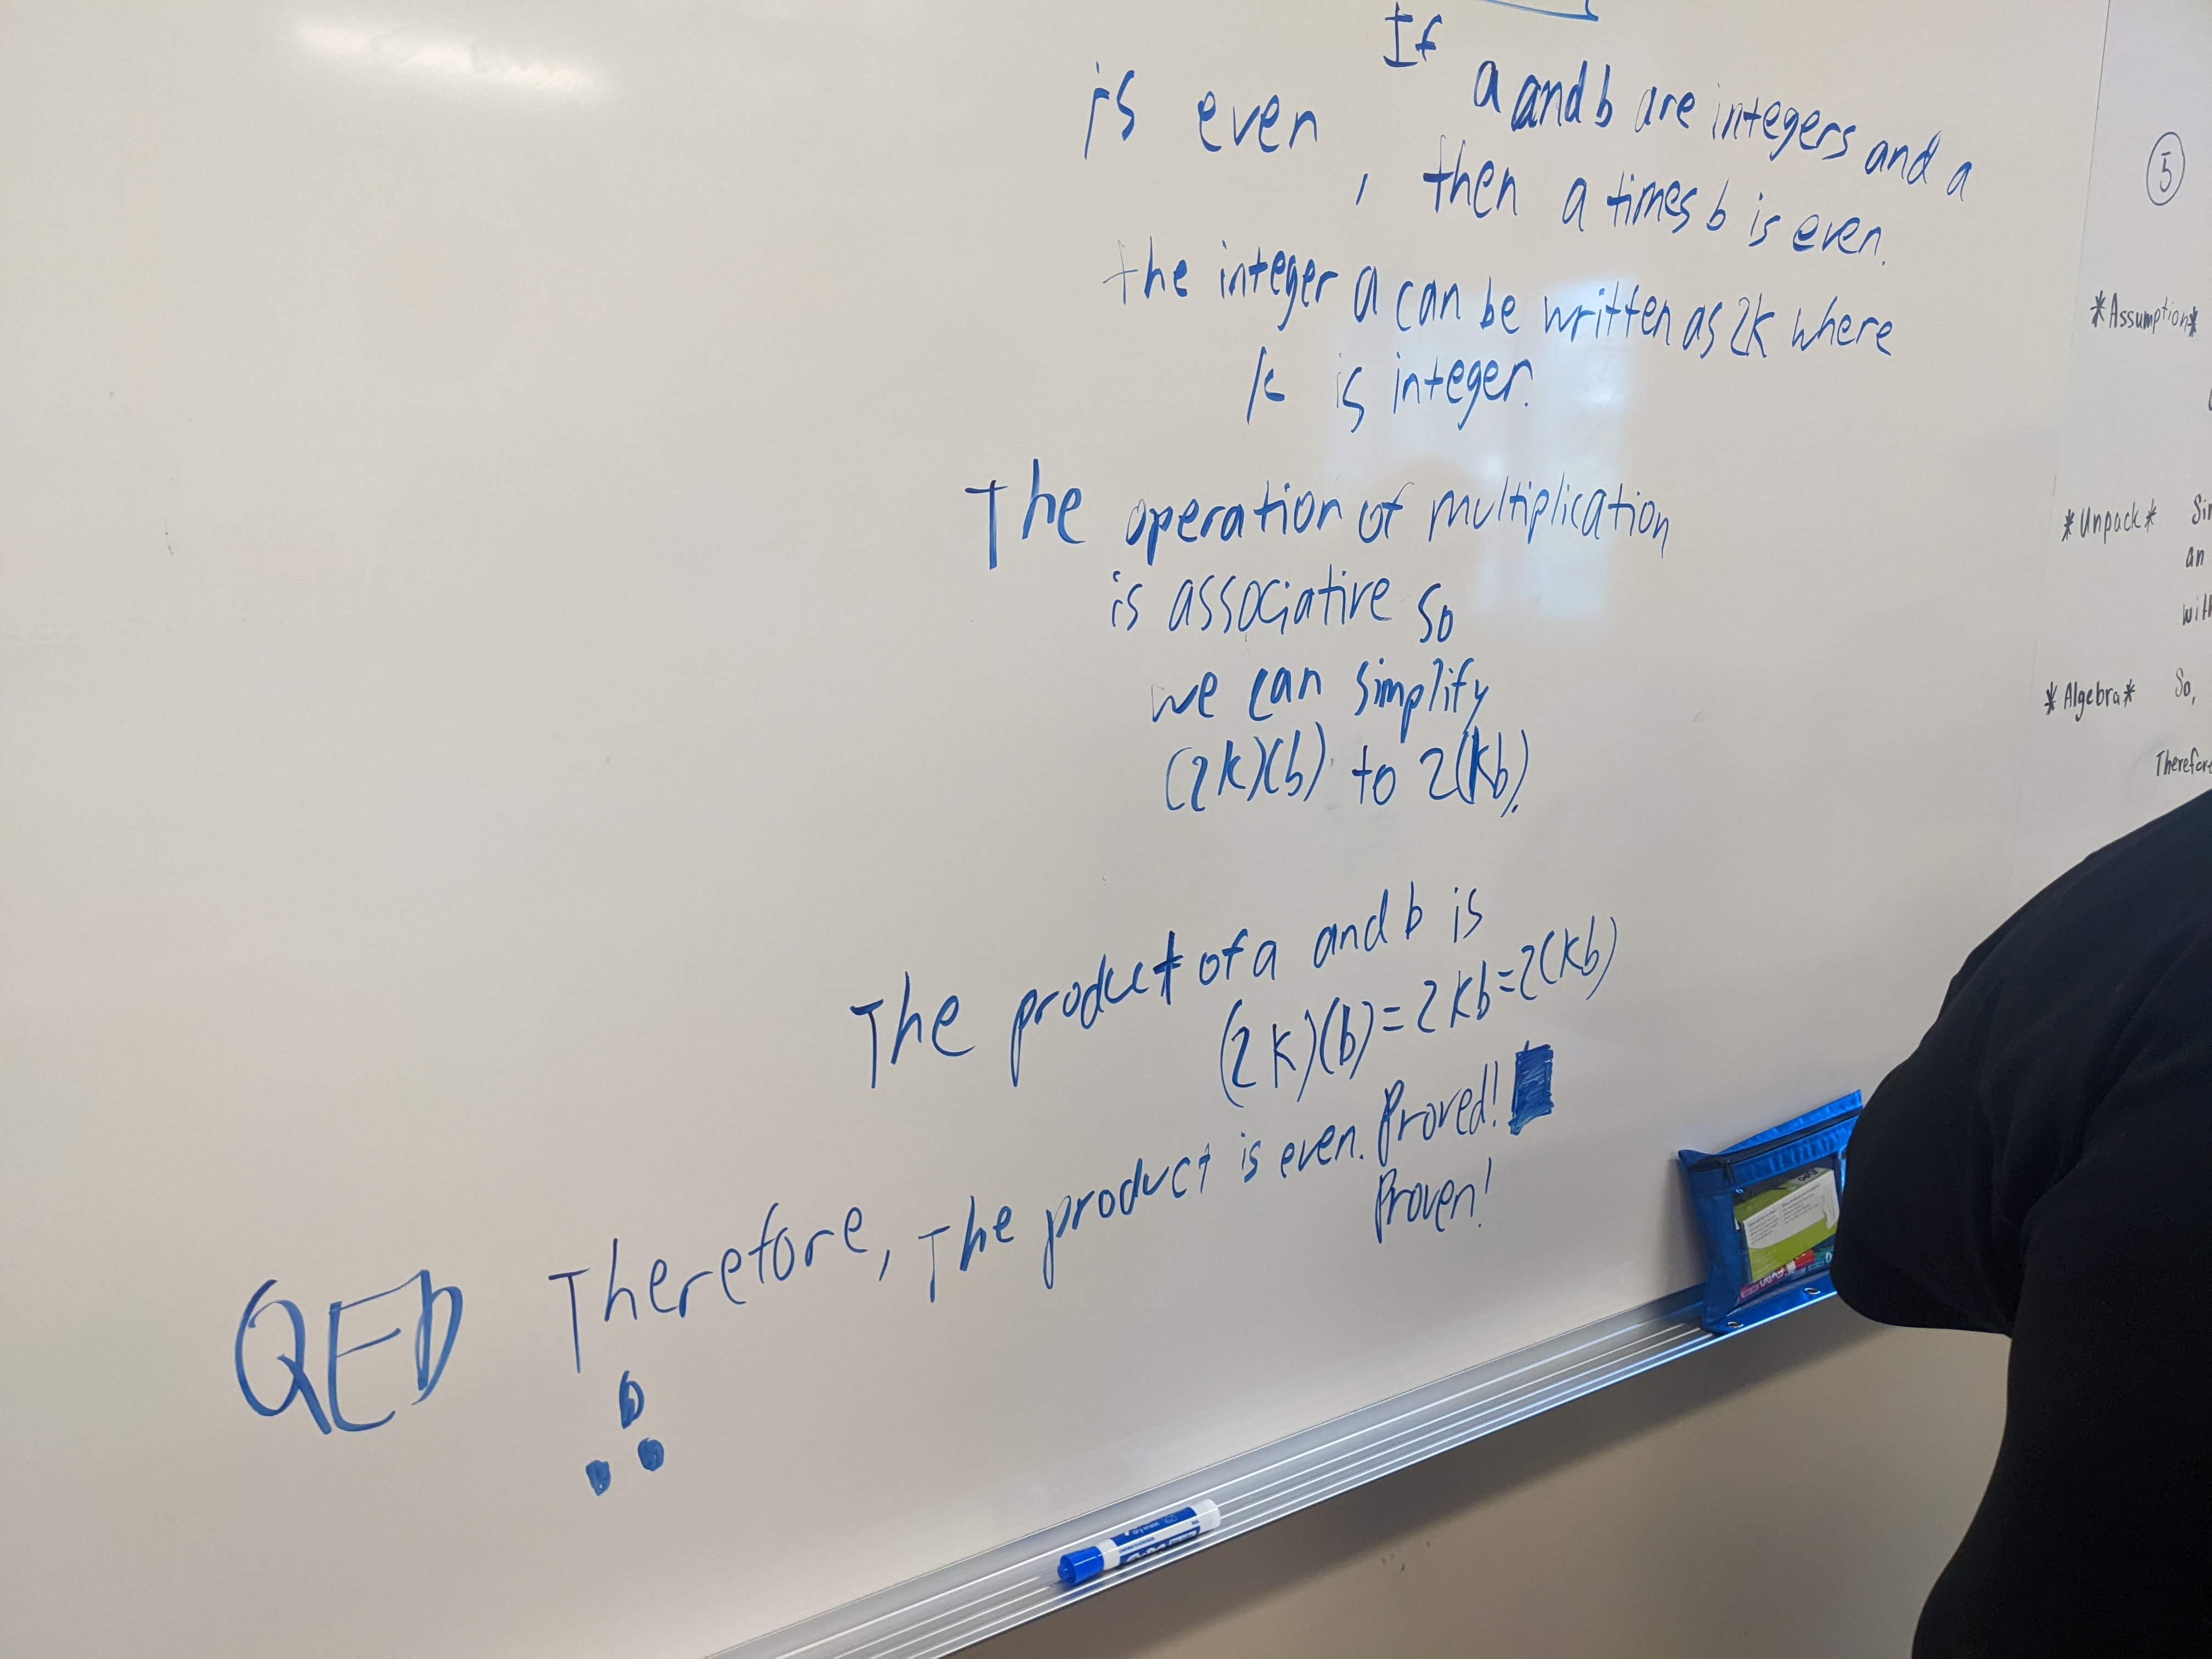 If
a and b are integers and a
is even, then a times b is even.
the integer a can be written as 2k where
k is integer.
The operation of multiplication
is associative so
we can simplify
(2k)(b) to 2(kb).
The product of a and b is
(2k)(b)=2kb=2(kb)
Therefore, The product is even. Proved!
Proven!
QED
5
*Assumption*
*Unpack*
an
*Algebra* So,